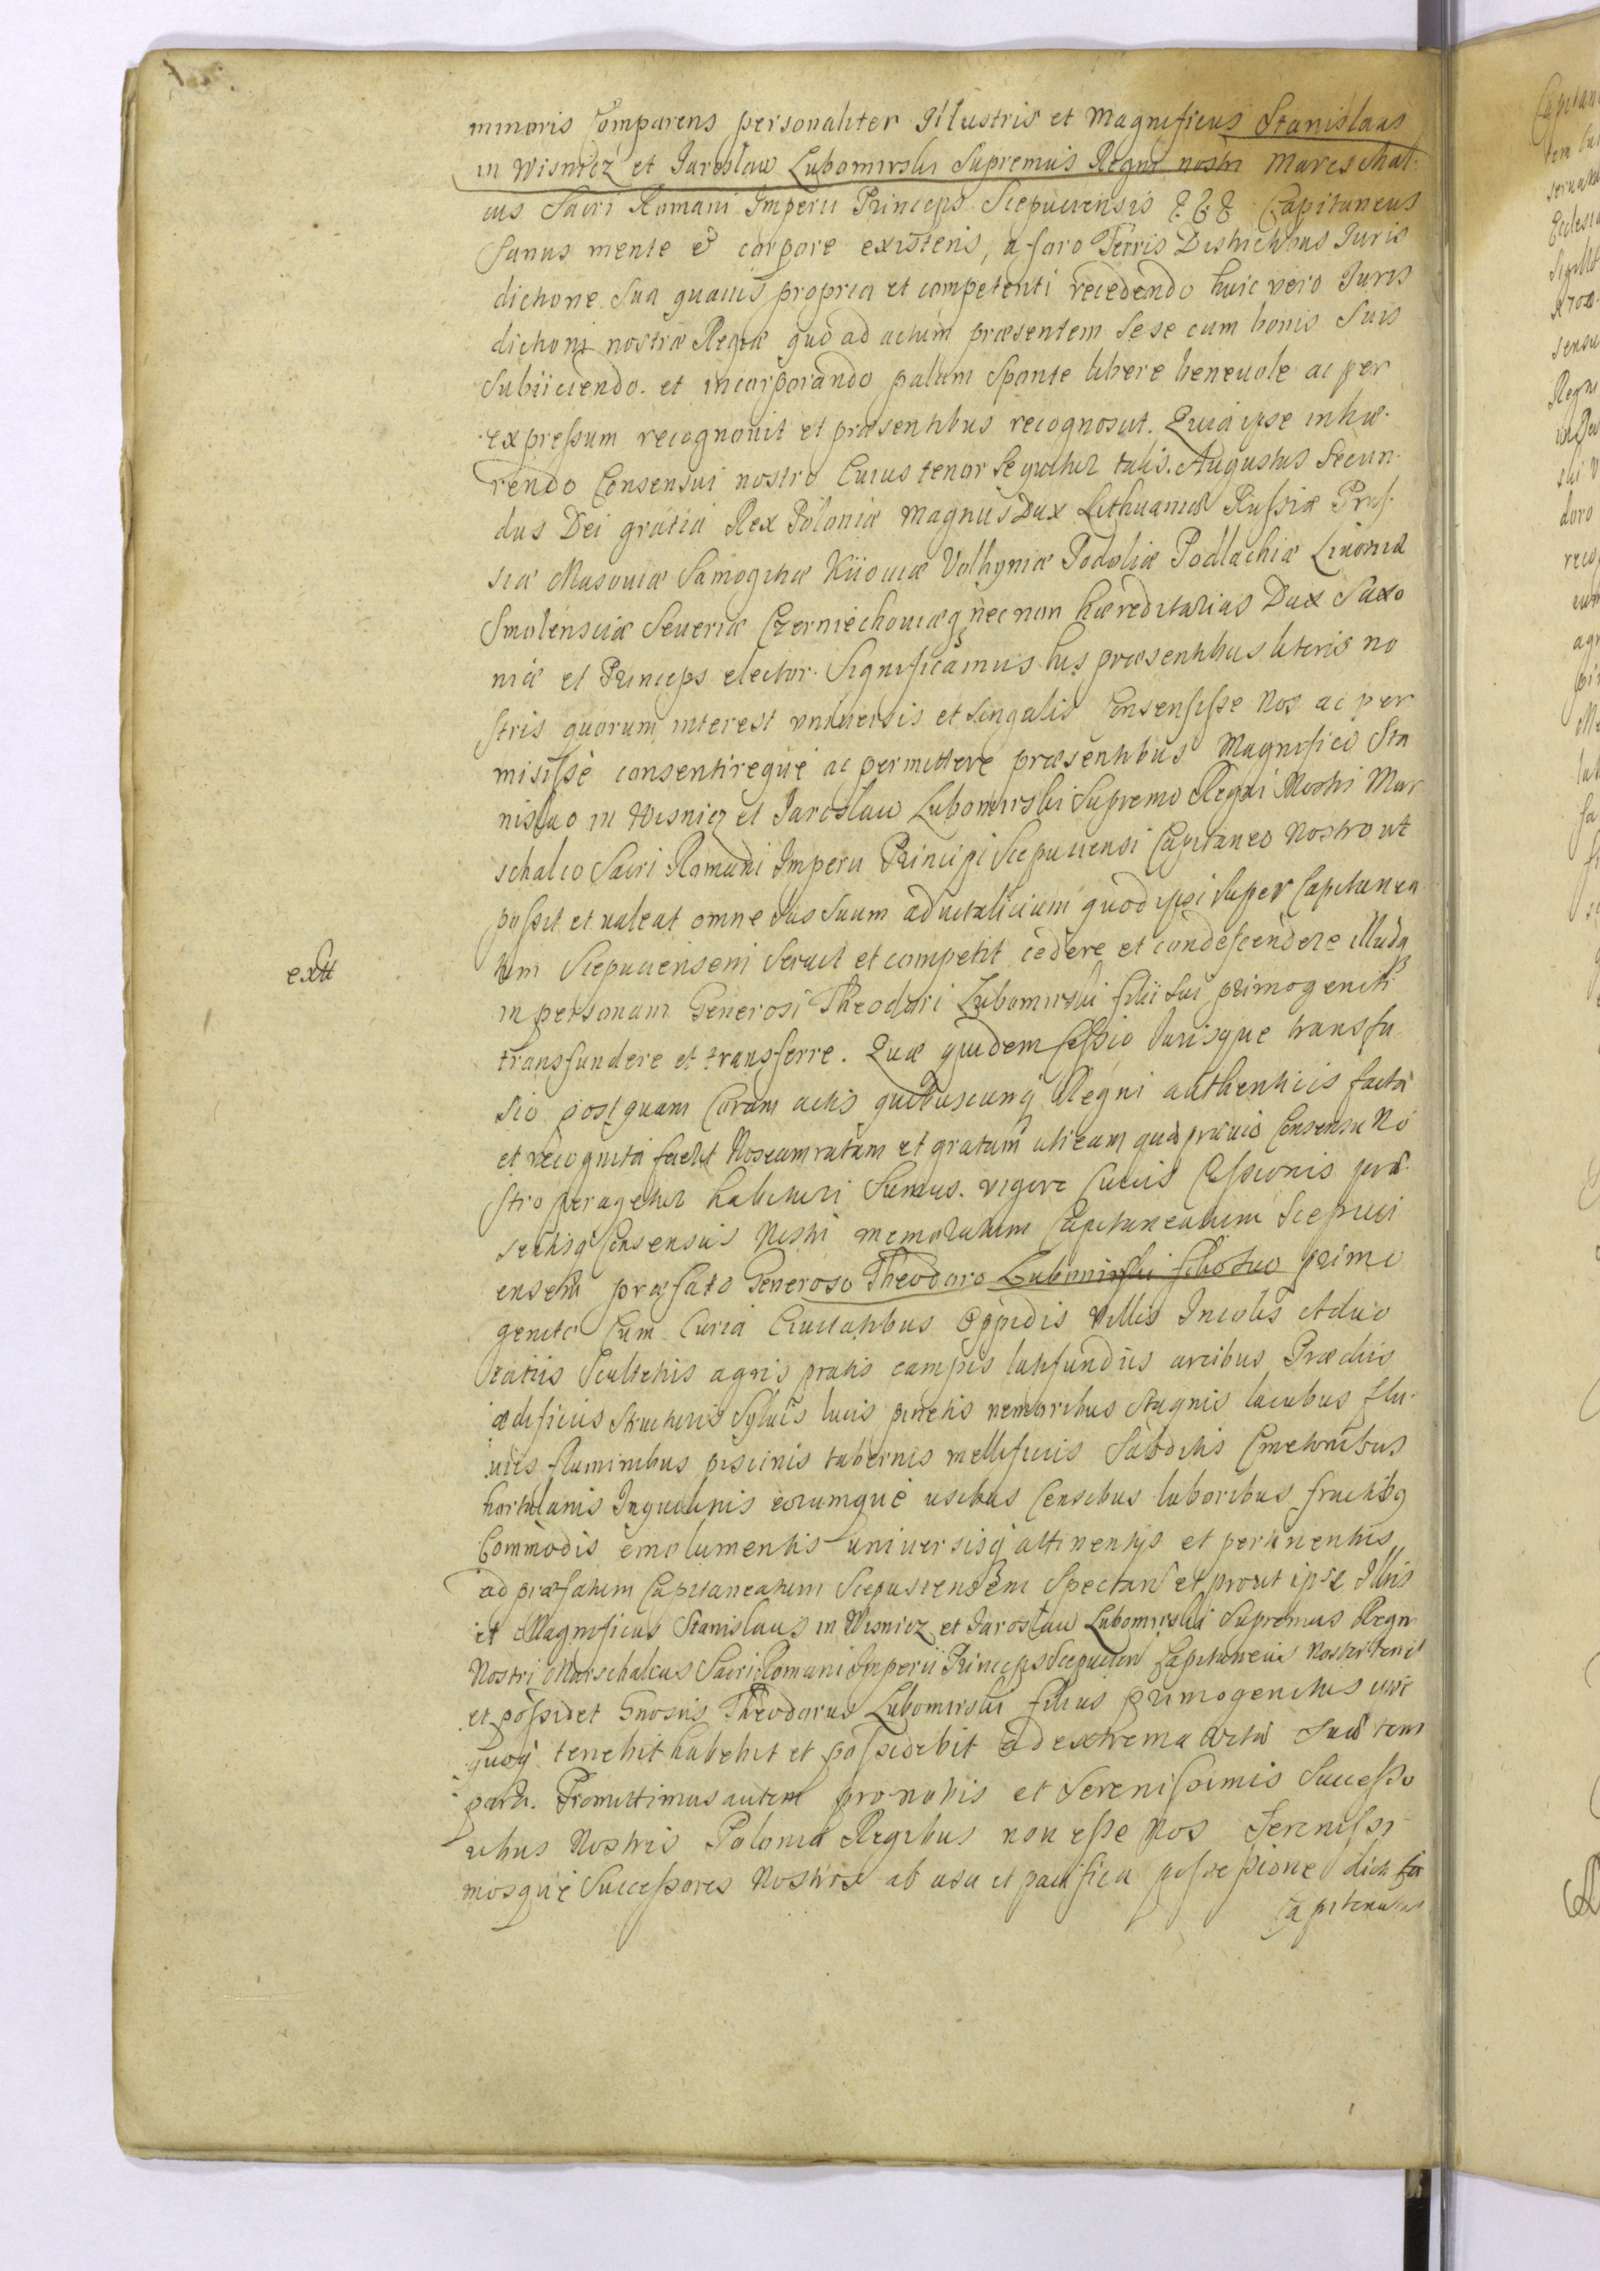 minoris Comparens personaliter Illustris et Magnificus Stanislaus
in Wisnicz et Jaroslaw Lubomirski Supremus Regni nostri Mareschal-
cus Sacri Romani Imperii Princeps Scepusiensis Capitaneus
Sanus mente et corpore existens, a foro Terris Districtibus Juris
dictione sua quauis propria et competenti recedendo huic vero Juris
dictioni nostræ Regiæ quo ad actum præsentem sese cum bonis suis
Subiiciendo. et incorporando palam Sponte libere beneuole ac per
expressum recognouit et præsentibus recognoscit. Quia ipse inhæ-
rendo Consensui nostro Cuius tenor Sequitur talis. Augustus Secun-
dus Dei gratia Rex Poloniæ Magnus Dux Lithuaniæ Russiæ Prus-
siæ Masouiæ Samogitiæ Kiiouiæ Volhyniæ Podoliæ Podlachiæ Liuoniæ
Smolensciæ Seueriæ Czerniechouiæq nec non hæreditarius Dux Saxo
niæ et Princeps elector. Significamus his præsentibus literis no
stris quorum interest vniuersis et singulis Consensisse Nos ac per
misisse consentireque ac permittere præsentibus Magnifico Sta
nislao in Wisnicz et Jaroslaw Lubomirski Supremo Regni Nostri Mar
schalco Sacri Romani Imperii Principi Scepusiensi Capitaneo Nostro ut
possit et ualeat omne Ius suum aduitalicium quod ipsi super Capitanea
tum Scepusiensem Seruit et competit cedere et condescendere illudq
extt
in personam Generosi Theodori Lubomirski filii sui primogeniti
transfundere et transferre. Quæ quidem Cessio Iurisque transfu
sio postquam Coram actis quibuscunq Regni authenticis facta
et recognita fuerit Nos eam ratam et gratam uti eam quæ præuio Consensu No
stro peragetur habituri Sumus. vigore Cuius Cessionis præ-
sentisq Consensus Nostri memoratum Capitaneatum Scepusi
ensem præfato Generoso Theodoro Lubomirski filio suo primo
genito Cum Curia Ciuitatibus Oppidis Villis Incolis Aduo
catiis Scultetiis agris pratis campis latifundiis arcibus Prædiis
ædificiis Structuris Syluis lucis pinetis nemoribus Stagnis lacubus flu-
uiis fluminibus piscinis tabernis mellificiis Subditis Cmetonibus
hortulanis Inquilinis eorumque usibus Censibus laboribus fructibq
Commodis emolumentis uniuersisq attinentijs et pertinentiis
ad præfatum Capitaneatum Scepusiensem Spectan et prout ipse Illris
et Magnificus Stanislaus in Wisnicz et Jaroslaw Lubomirski Supremus Regni
Nostri Marschalcus Sacri Romani Imperii Princeps Scepusien Capitaneus Noster tenet
et possidet Gnosus Theodorus Lubomirski filius primogenitus
quoq tenebit habebit et possidebit ad extrema vitæ suæ tem
pora. Promittimus autem pro nobis et Serenissimis Successo
ribus Nostris Poloniæ Regibus non esse Nos Serenissi-
mosque Successores Nostros ab usu et pacifica possessione dicti
Capitaneatus